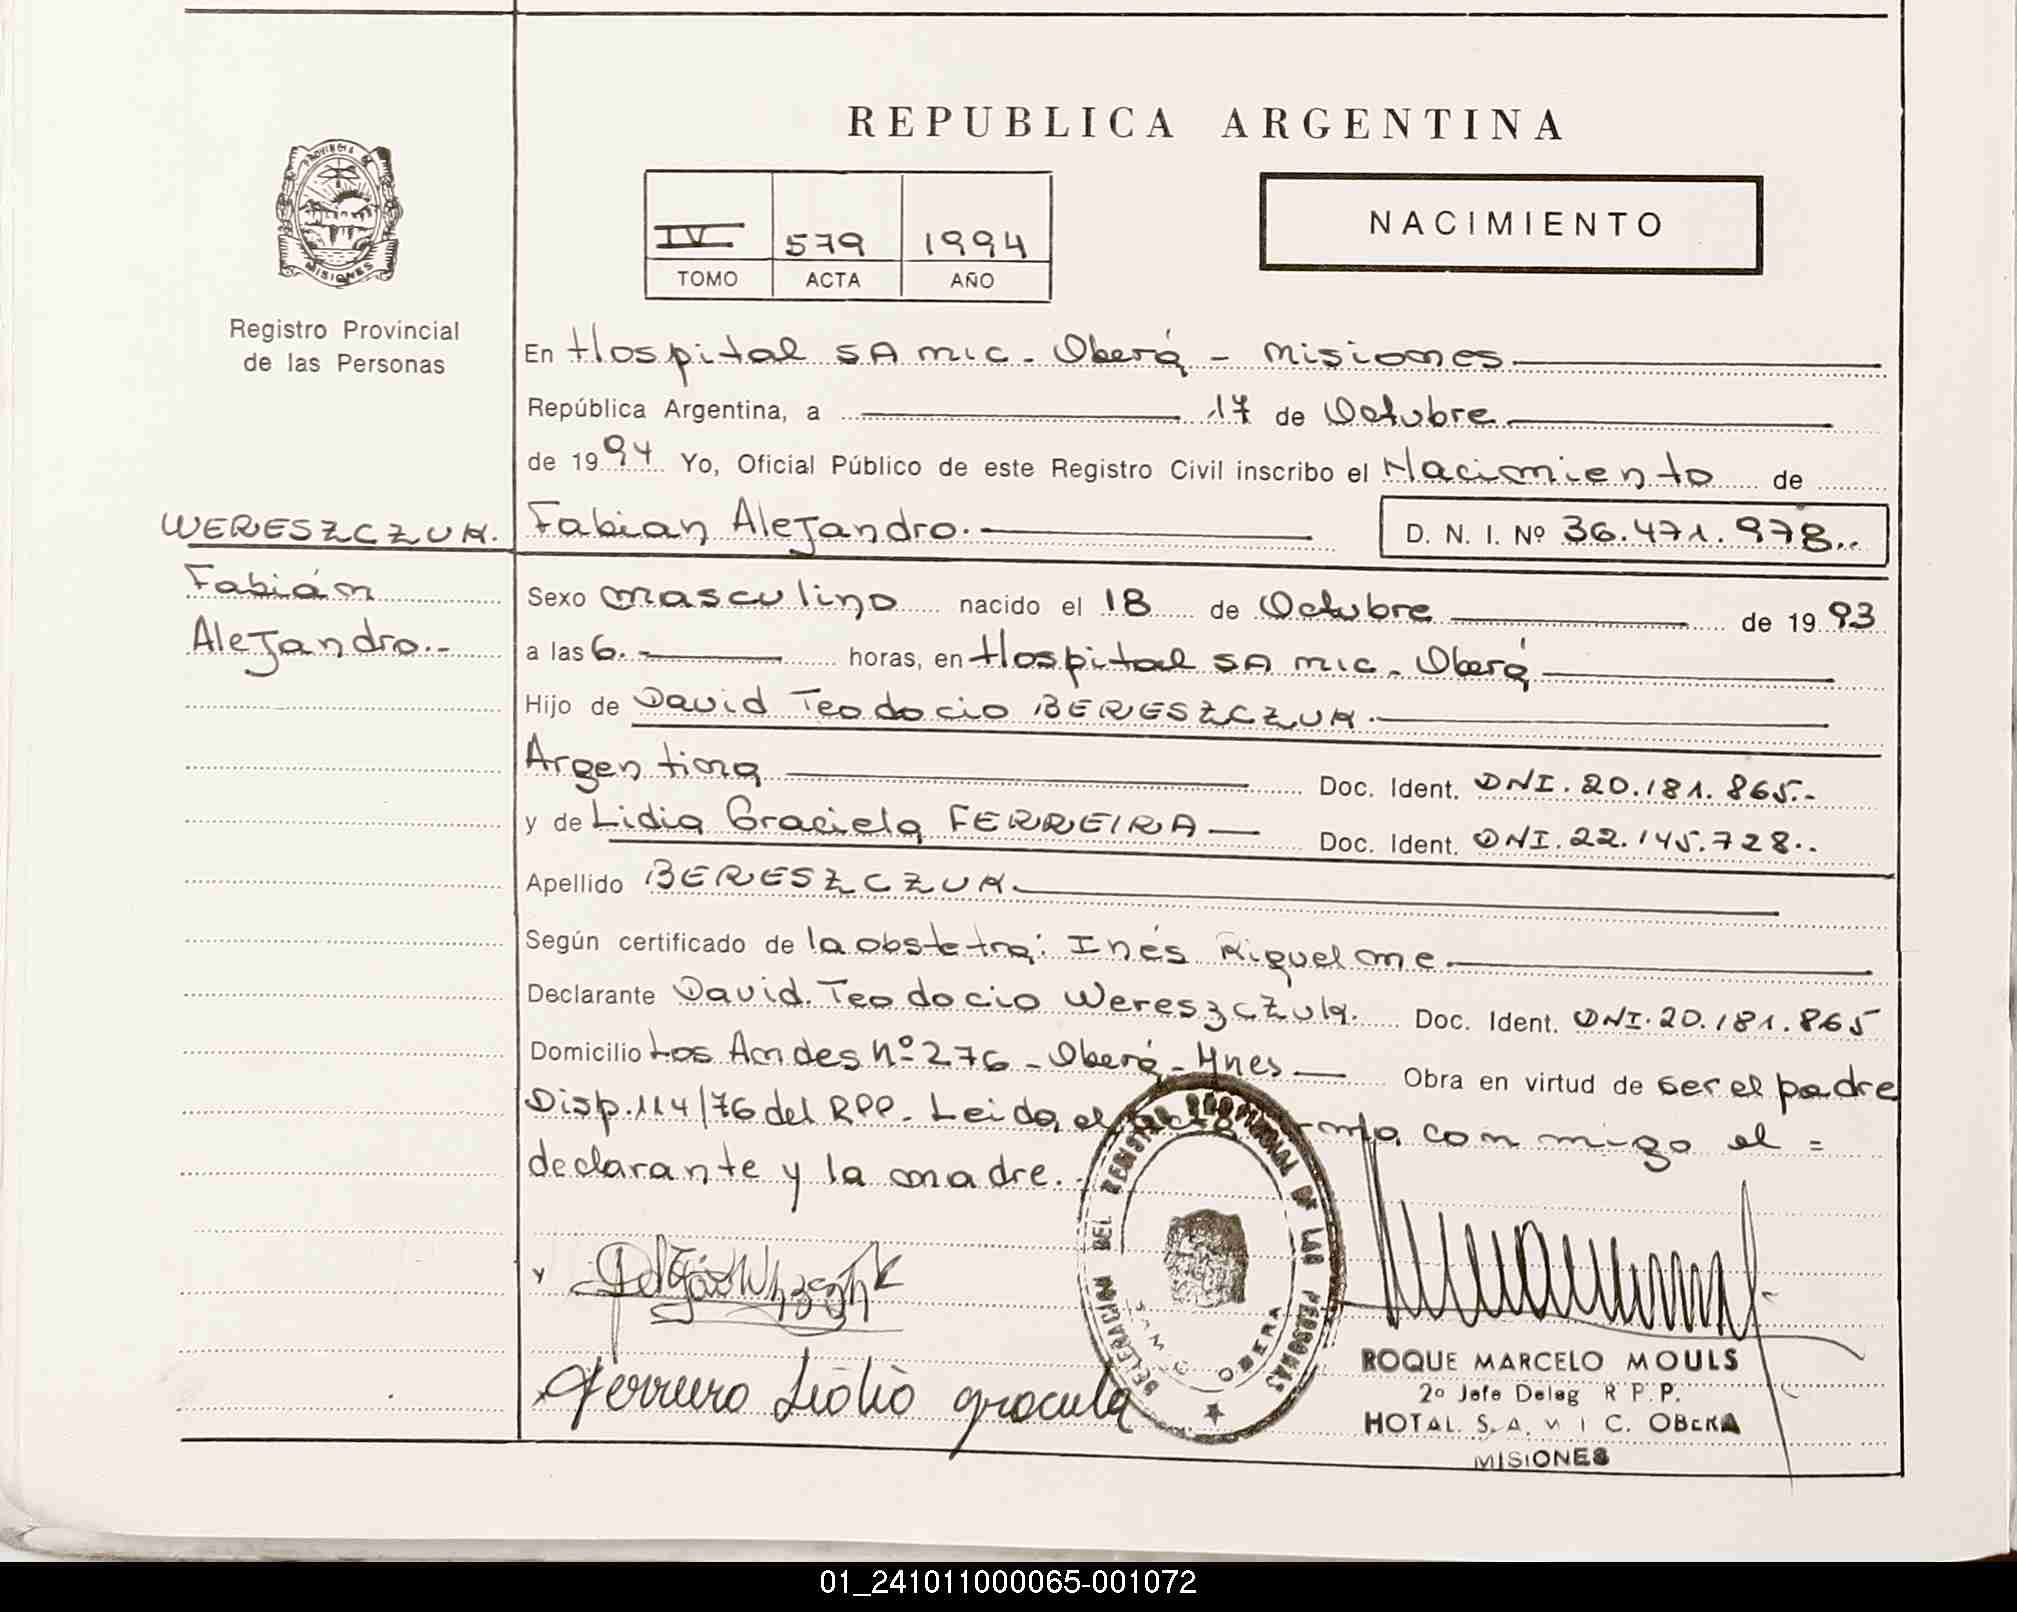 REPUBLICA ARGENTINA
PROVINCIA DE
MISIONES
Registro Provincial
de las Personas
IV 579 1994
TOMO ACTA AÑO
NACIMIENTO
En Hospital SAMIC - Oberá - Misiones
República Argentina, a 17 de Octubre
de 1994 Yo, Oficial Público de este Registro Civil inscribo el Nacimiento de
WERESZCZUK. Fabian Alejandro. D. N. I. Nº 36.471.978..
Fabián
Alejandro.-
Sexo masculino nacido el 18 de Octubre de 1993
a las 6. horas, en Hospital SAMIC - Oberá
Hijo de David Teodocio BERESZCZUK.
Argentina Doc. Ident. DNI. 20.181.865.-
y de Lidia Graciela FERREIRA Doc. Ident. DNI. 22.145.728..
Apellido BERESZCZUK
Según certificado de la obstetra: Inés Riquelme
Declarante David Teodocio Wereszczuk. Doc. Ident. DNI. 20.181.865
Domicilio Los Andes Nº 276 - Oberá - Mnes Obra en virtud de ser el padre
Disp. 114/76 del RPP. Leida el acta con migo el =
declarante y la madre.
DELEGACION DEL REGISTRO PROVINCIAL DE LAS PERSONAS
OBERA
ROQUE MARCELO MOULS
2º Jefe Deleg R.P.P.
HOTAL. S. A. M I C. OBERA
MISIONES
01_241011000065-001072